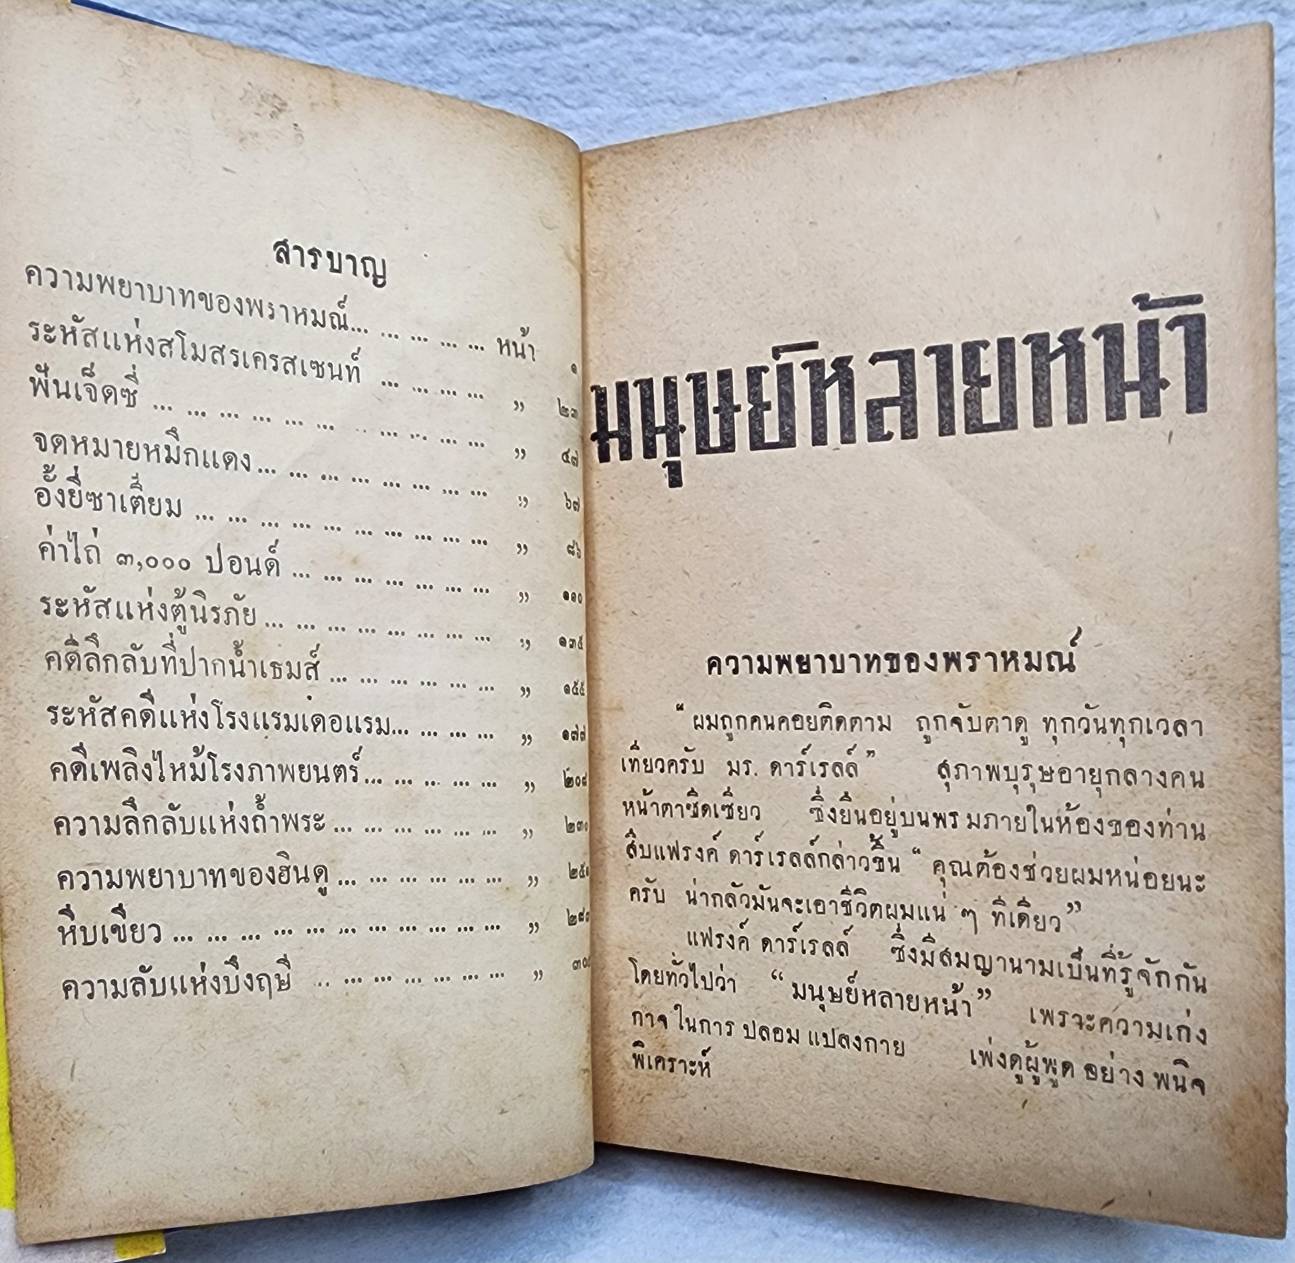 สารบาญ
ความพยาบาทของพราหมณ์... ... ... ... ... หน้า ๑
ระหัสแห่งสโมสรเครสเซนท์ ... ... ... ... ,, ๒๓
ฟันเจ็ดซี่ ... ... ... ... ... ... ... ... ... ... ... ,, ๔๗
จดหมายหมึกแดง... ... ... ... ... ... ... ... ,, ๖๗
อั้งยี่ซาเตี๊ยม ... ... ... ... ... ... ... ... ... ,, ๘๖
ค่าไถ่ ๓,๐๐๐ ปอนด์ ... ... ... ... ... ... ... ,, ๑๑๐
ระหัสแห่งตู้นิรภัย ... ... ... ... ... ... ... ... ,, ๑๓๕
คดีลึกลับที่ปากน้ำเธมส์ ... ... ... ... ... ... ,, ๑๕๕
ระหัสคดีแห่งโรงแรมเดอแรม... ... ... ... ,, ๑๗๗
คดีเพลิงไหม้โรงภาพยนตร์... ... ... ... ... ,, ๒๐๘
ความลึกลับแห่งถ้ำพระ ... ... ... ... ... ... ,, ๒๓๐
ความพยาบาทของฮินดู ... ... ... ... ... ... ,,
หีบเขียว ... ... ... ... ... ... ... ... ... ... ... ,,
ความลับแห่งบึงฤษี .. ... ... ... ... ... ... ,,
มนุษย์หลายหน้า
ความพยาบาทของพราหมณ์
“ผมถูกคนคอยติดตาม ถูกจับตาดู ทุกวันทุกเวลา
เทียวครับ มร. ดาร์เรลล์” สุภาพบุรุษอายุกลางคน
หน้าตาซีดเซียว ซึ่งยืนอยู่บนพรมภายในห้องของท่าน
สิบแฟรงค์ ดาร์เรลล์กล่าวขึ้น “คุณต้องช่วยผมหน่อยนะ
ครับ น่ากลัวมันจะเอาชีวิตผมแน่ ๆ ทีเดียว”
แฟรงค์ ดาร์เรลล์ ซึ่งมีสมญานามเป็นที่รู้จักกัน
โดยทั่วไปว่า “มนุษย์หลายหน้า” เพราะความเก่ง
กาจ ในการ ปลอม แปลงกาย เพ่งดูผู้พูด อย่าง พนิจ
พิเคราะห์